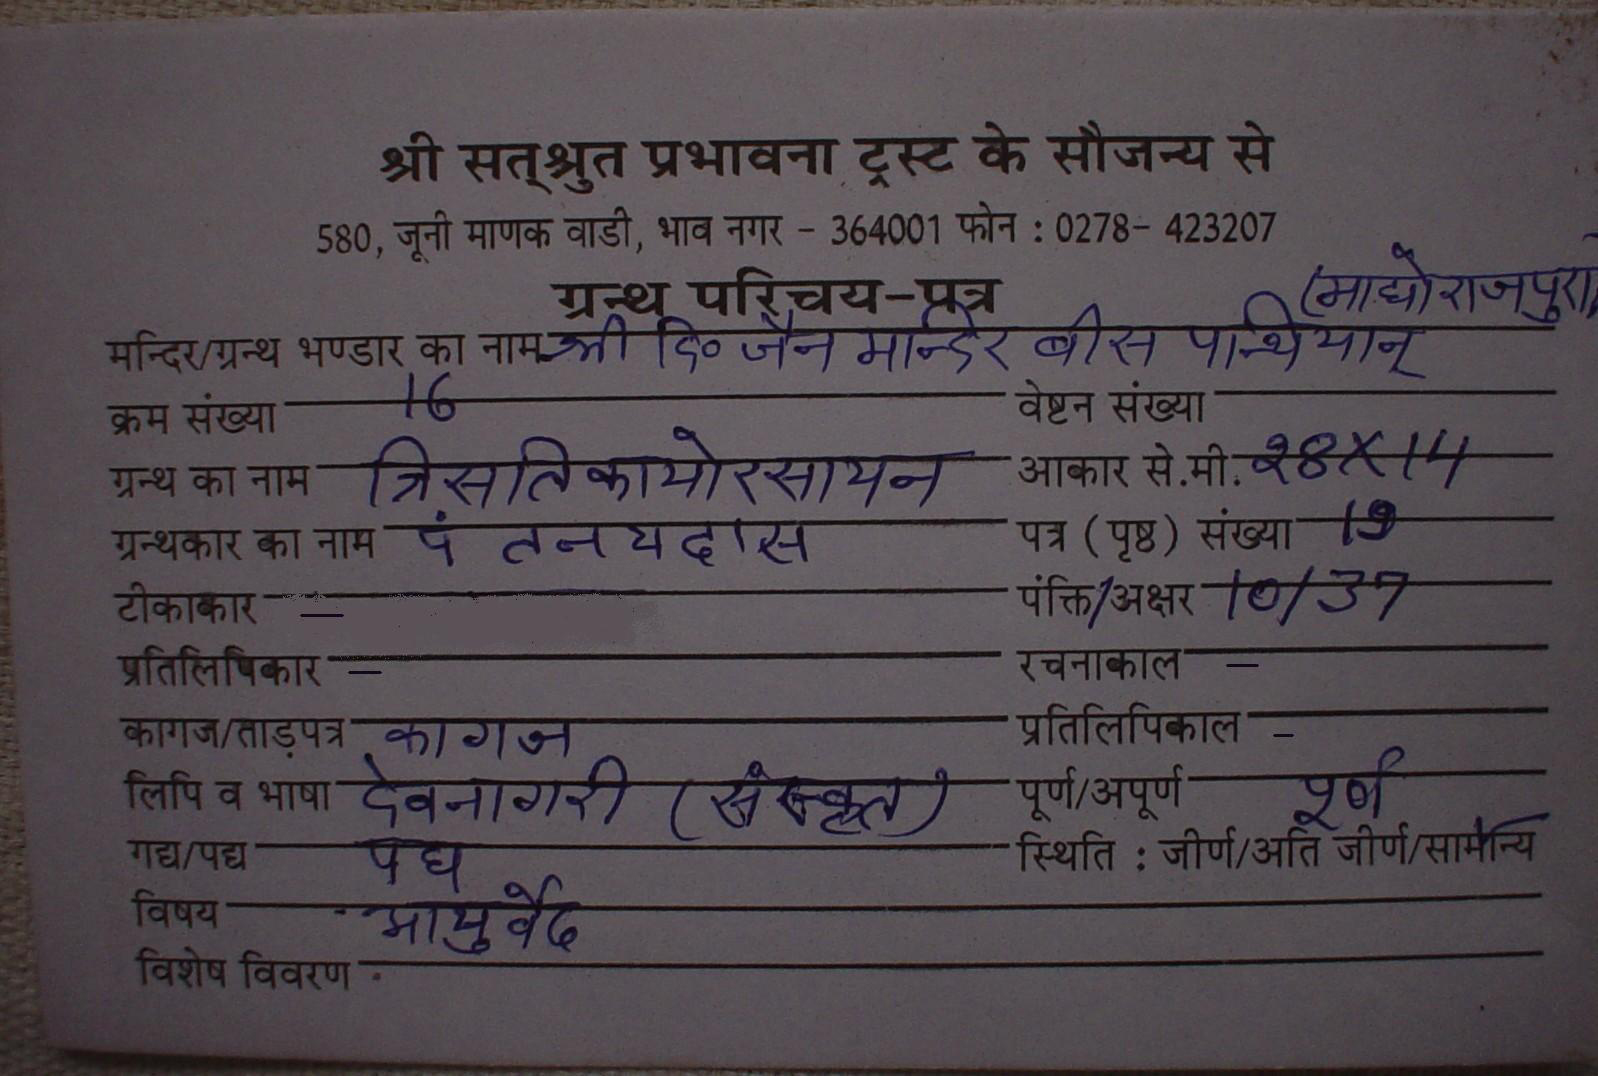 श्री सत्श्रुत प्रभावना ट्रस्ट के सौजन्य से
580, जूनी माणक वाडी, भाव नगर - 364001 फोन : 0278- 423207
ग्रन्थ परिचय-पत्र (माधोराजपुरा)
मन्दिर/ग्रन्थ भण्डार का नाम श्री दि० जैन मन्दिर बीस पन्थियान्
क्रम संख्या 16 वेष्टन संख्या
ग्रन्थ का नाम त्रिसतिकायोरसायन आकार से.मी. 28X14
ग्रन्थकार का नाम पं तनयदास पत्र (पृष्ठ) संख्या
टीकाकार — पंक्ति/अक्षर 10/37
प्रतिलिपिकार — रचनाकाल —
कागज/ताड़पत्र कागज प्रतिलिपिकाल -
लिपि व भाषा देवनागरी (संस्कृत) पूर्ण/अपूर्ण पूर्ण
गद्य/पद्य पद्य स्थिति : जीर्ण/अति जीर्ण/सामान्य
विषय आयुर्वेद
विशेष विवरण